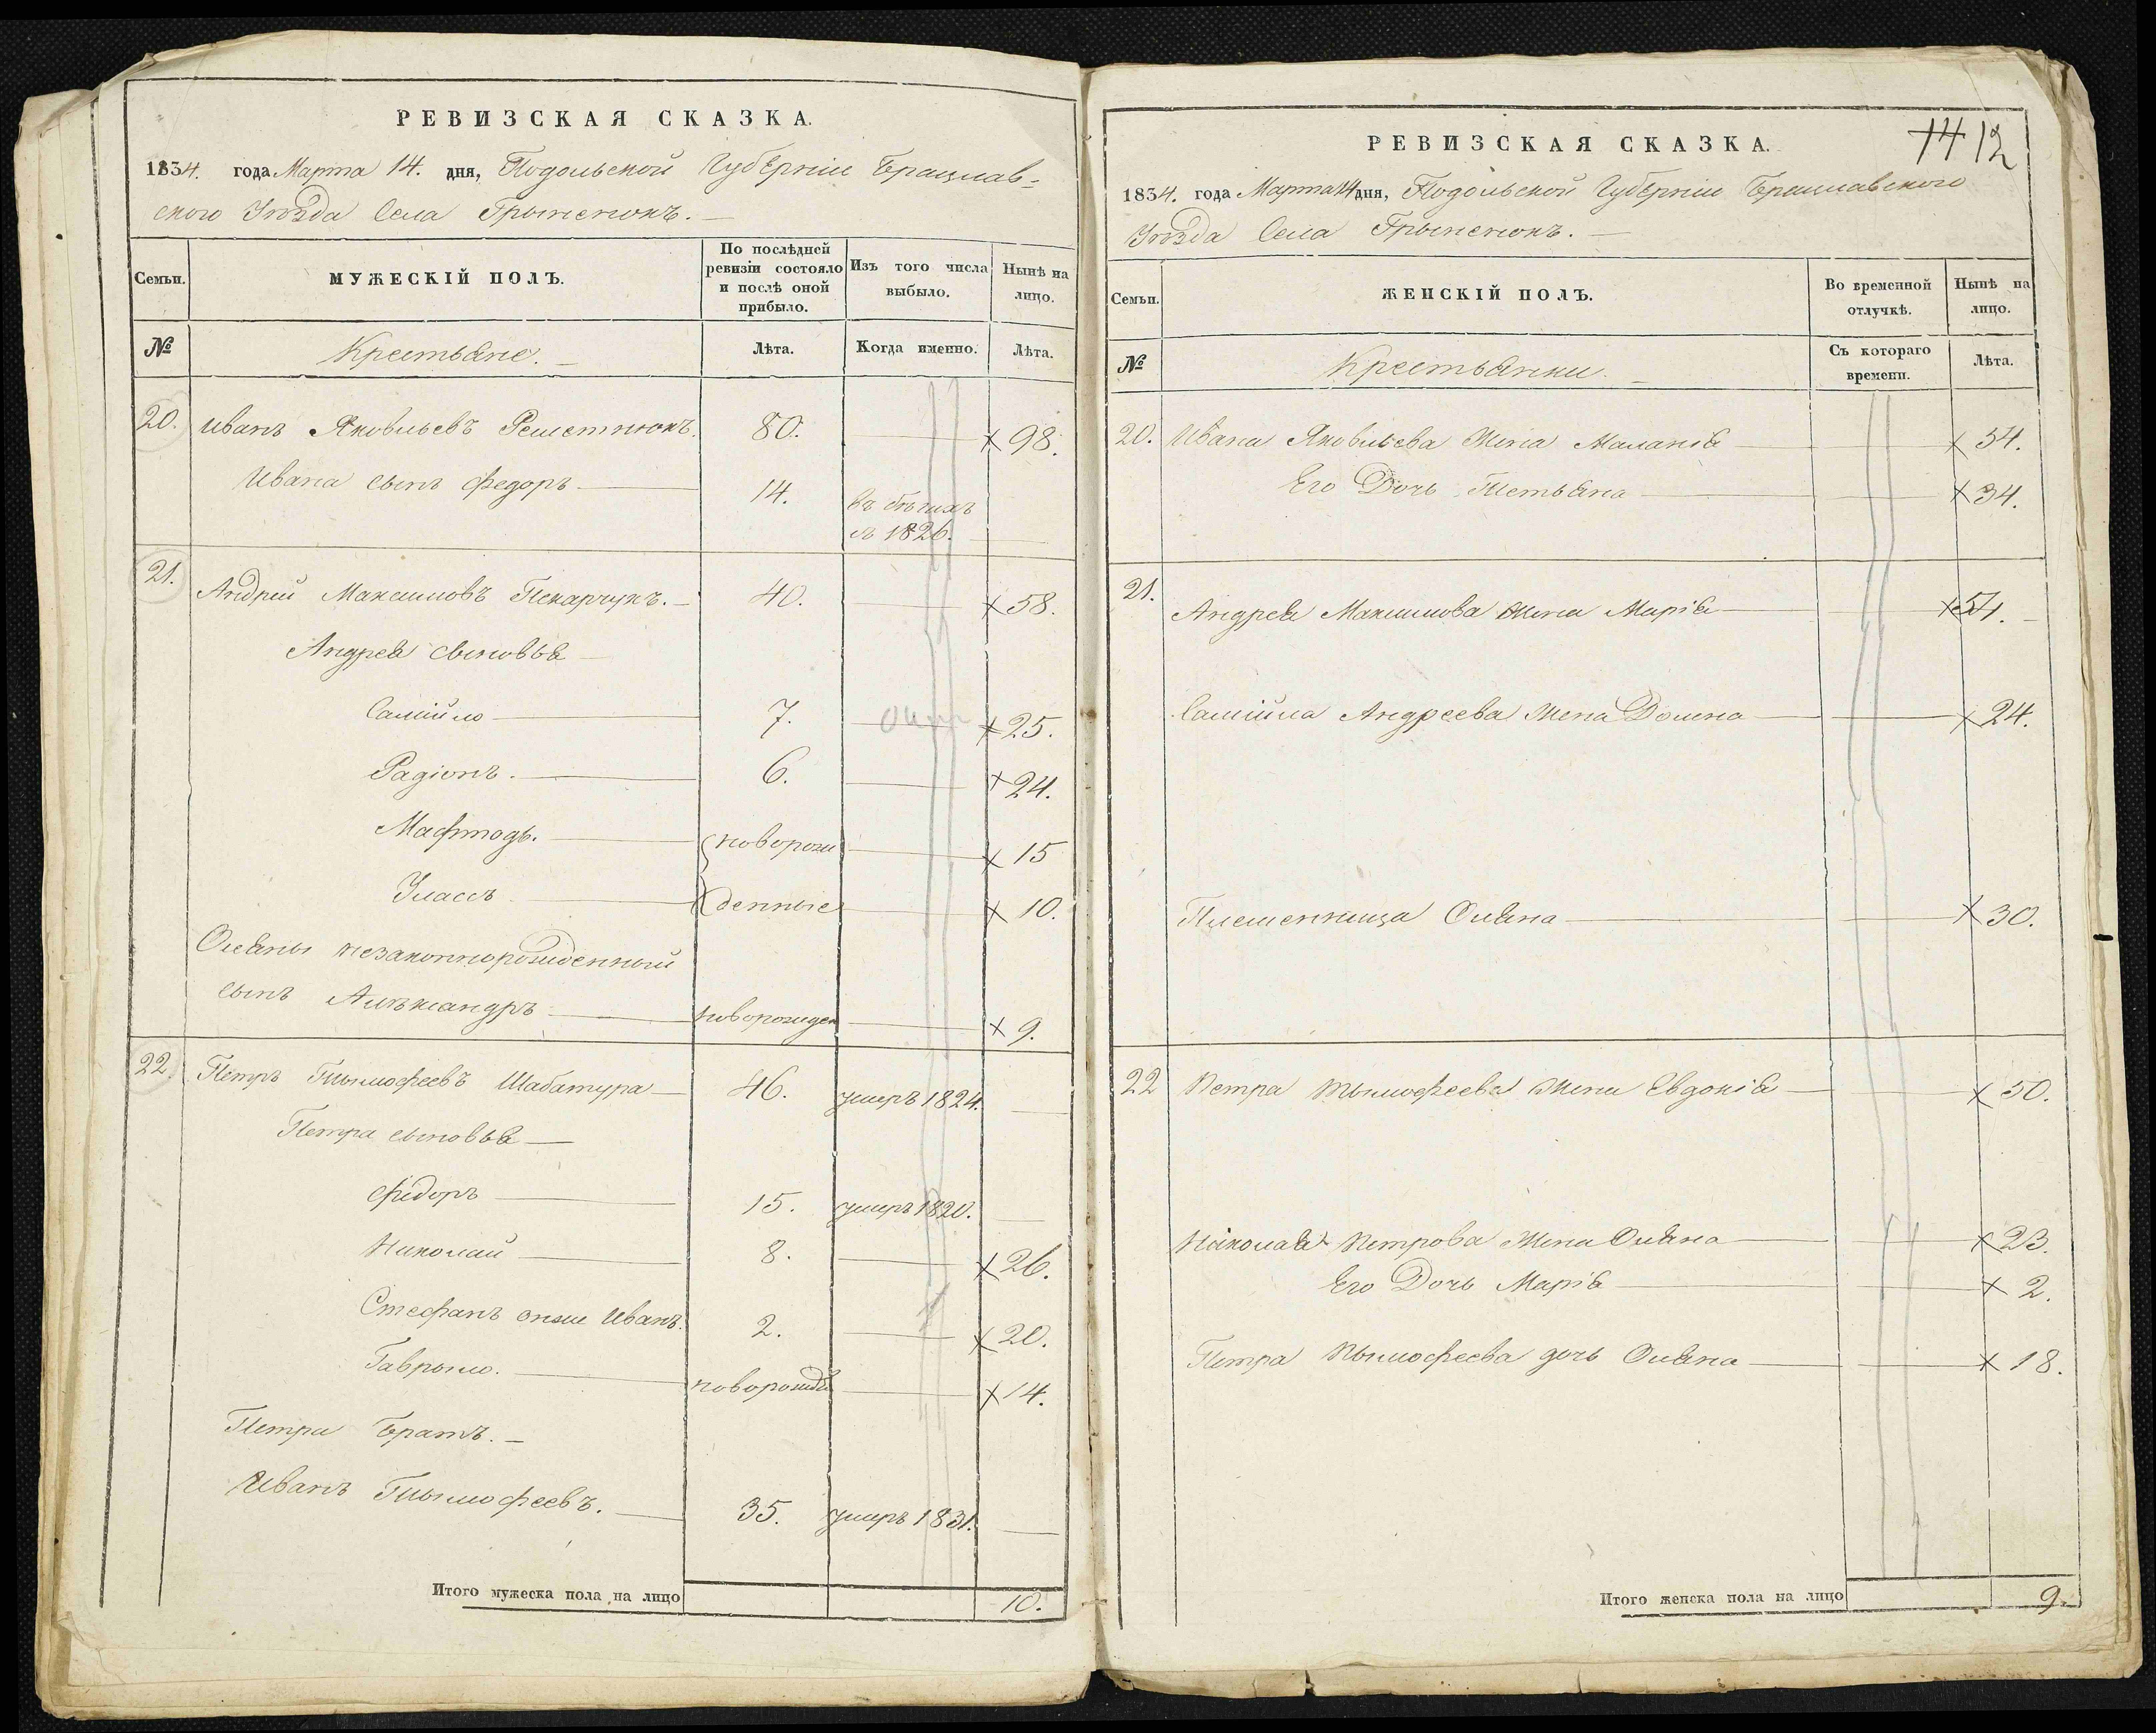 РЕВИЗСКАЯ СКАЗКА.
1834. года Марта 14. дня, Подольской Губерніи Брацлав-
ского Уѣзда Села Грыненокъ. —
Семьи.
МУЖЕСКІЙ ПОЛЪ.
По послѣдней
ревизіи состояло
и послѣ оной
прибыло.
Изъ того числа
выбыло.
Нынѣ на
лицо.
№
Крестьяне. —
Лѣта.
Когда именно.
Лѣта.
20. Иванъ Яковлевъ Решетнюкъ. 80. — × 98.
Ивана сынъ Федоръ — 14. въ бѣгахъ
съ 1826. —
21. Андрій Максимовъ Пекарчукъ. — 40. — × 58.
Андрея сыновья —
Самійло — 7. — × 25.
Радіонъ. — 6. — × 24.
Мафтодь. — новорож — × 15
Уласъ — денные — × 10.
Оляны незаконнорожденный
сынъ Алѣксандръ — новорожден — × 9.
22. Петръ Тымофеевъ Шабатура — 46. умеръ 1824. —
Петра сыновья —
Фидоръ — 15. умеръ 1820. —
Николай — 8. — × 26.
Стефанъ онже Иванъ. 2. — × 20.
Гаврыло. — новорожде — × 14.
Петра Братъ. —
Иванъ Тымофеевъ. — 35. умеръ 1831. —
Итого мужеска пола на лицо 10.
14 12
РЕВИЗСКАЯ СКАЗКА.
1834. года Марта 14 дня, Подольской Губерніи Брацлавского
Уѣзда Села Грыненокъ. —
Семьи.
ЖЕНСКІЙ ПОЛЪ.
Во временной
отлучкѣ.
Нынѣ на
лицо.
№
Крестьянки. —
Съ котораго
времени.
Лѣта.
20. Ивана Яковлева Жена Маланія — × 54.
Его Дочь Тетьяна — × 34.
21. Андрея Максимова Жена Марія — × 54. —
Самійла Андреева Жена Домна — × 24.
Племенница Оляна — × 30.
22 Петра Тымофеева Жена Евдокія — × 50.
Николая Петрова Жена Оляна — × 23.
Его Дочь Марія — × 2.
Петра Тымофеева дочь Оляна — × 18.
Итого женска пола на лицо 9.